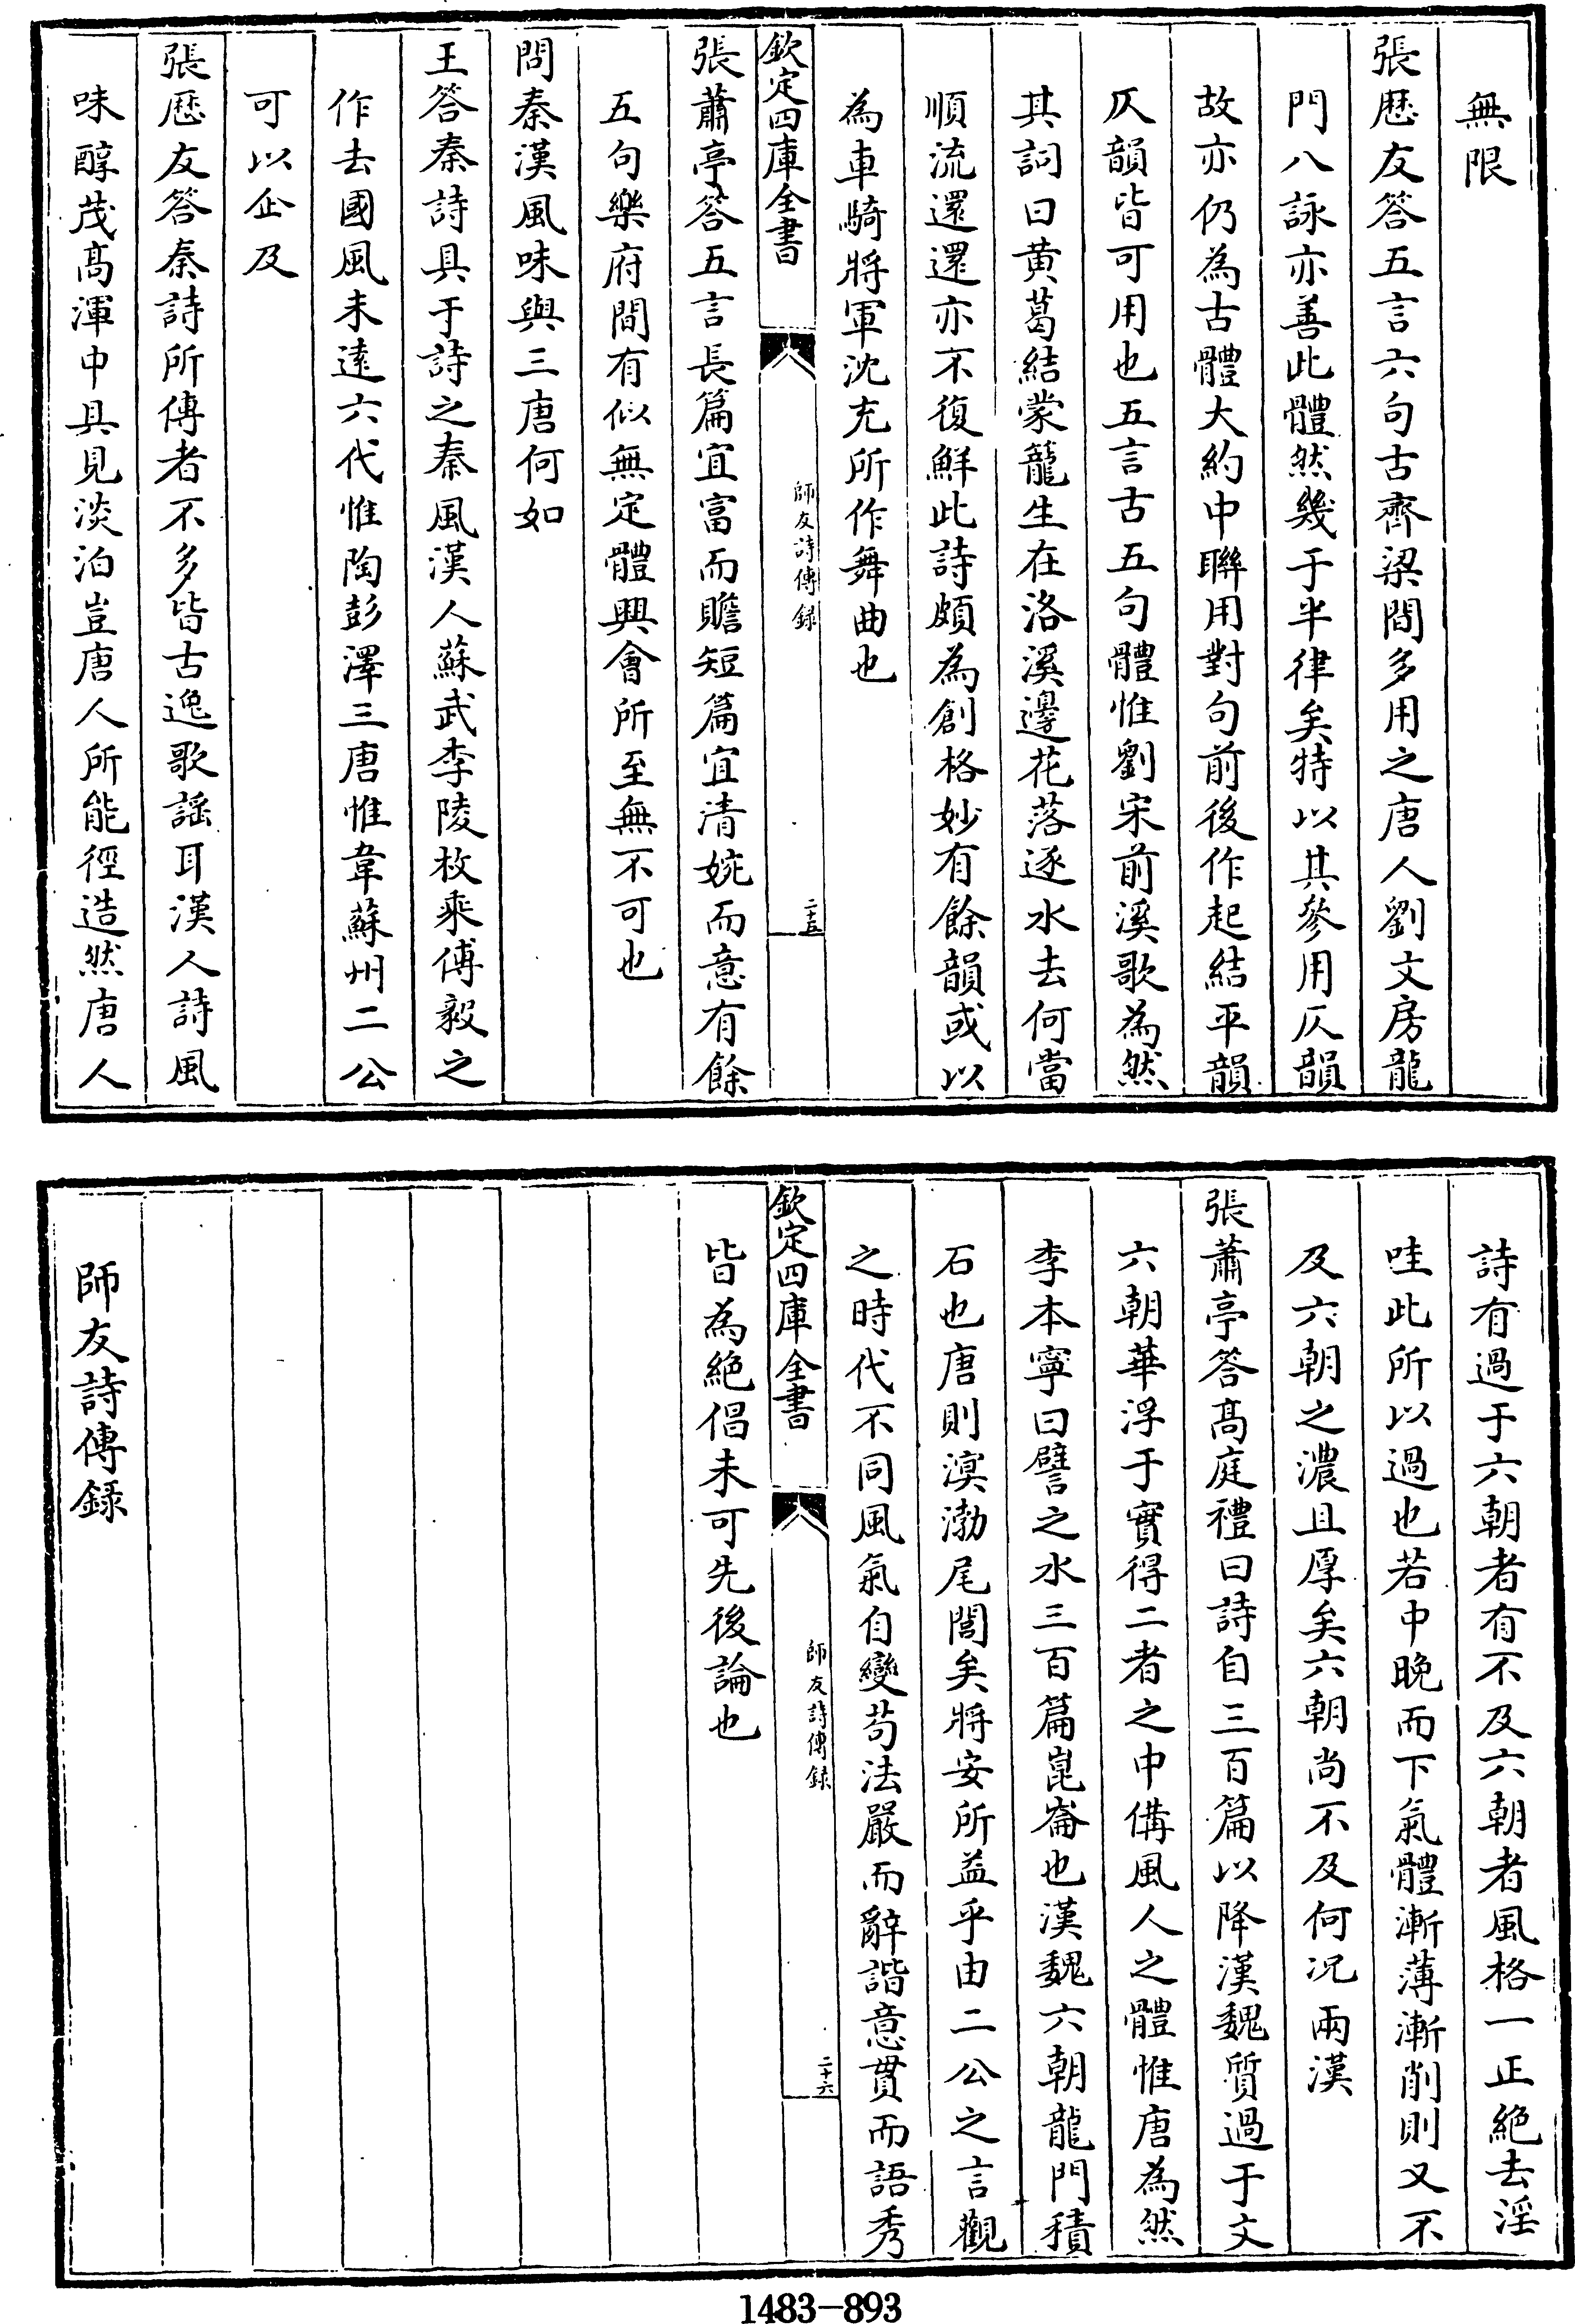 無限
張厯友答五言六句古齊梁間多用之唐人劉文房龍
門八詠亦善此體然幾于半律矣特以其參用仄韻
故亦仍為古體大約中聯用對句前後作起結平韻
仄韻皆可用也五言古五句體惟劉宋前溪歌為然
其詞曰黄葛結蒙籠生在洛溪邊花落逐水去何當
順流還還亦不復鮮此詩頗為創格妙有餘韻或以
為車騎將軍沈充所作舞曲也
欽定四庫全書
師友詩傳録
二十五
張蕭亭答五言長篇宜富而贍短篇宜清婉而意有餘
五句樂府間有似無定體興會所至無不可也
問秦漢風味與三唐何如
王答秦詩具于詩之秦風漢人蘇武李陵枚乘傅毅之
作去國風未逺六代惟陶彭澤三唐惟韋蘇州二公
可以企及
張厯友答秦詩所傳者不多皆古逸歌謡耳漢人詩風
味醇茂髙渾中具見淡泊豈唐人所能徑造然唐人
詩有過于六朝者有不及六朝者風格一正絶去淫
哇此所以過也若中晚而下氣體漸薄漸削則又不
及六朝之濃且厚矣六朝尚不及何况兩漢
張蕭亭答髙庭禮曰詩自三百篇以降漢魏質過于文
六朝華浮于實得二者之中備風人之體惟唐為然
李本寧曰譬之水三百篇崑崙也漢魏六朝龍門積
石也唐則溟渤尾閭矣將安所益乎由二公之言觀
之時代不同風氣自變茍法嚴而辭諧意貫而語秀
欽定四庫全書
師友詩傳録
二十六
皆為絶倡未可先後論也
師友詩傳録
1483-893